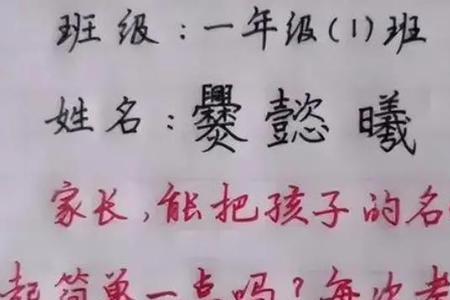 班级：一年级(1)班
姓名：爨懿曦
家长，能把孩子的名
起简单一点吗？每次考